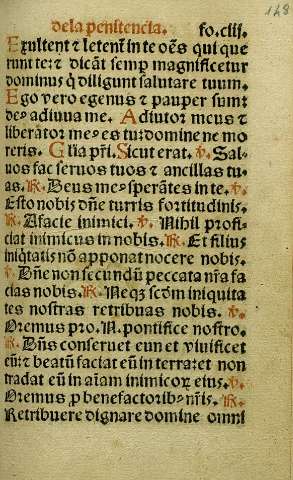 dela penitencia. fo. clii.
148
Exultent ⁊ letent̃ in te oẽs qui que
runt te: ⁊ dicãt semp̲ magnificetur
dominus q̃ diligunt salutare tuum.
Ego vero egenus ⁊ pauper sum:
deꝰ adiuva me. Adiutor meus ⁊
liberãtor meꝰ es tu: domine ne mo
reris. Gl̃ia pr̃i. Sicut erat. ℣. Sal-
uos fac seruos tuos ⁊ ancillas tu-
as. ℟. Deus meꝰ sperãtes in te. ℣.
Esto nobis dñe turris fortitudinis.
℟. A facie inimici. ℣. Nihil profi-
ciat inimicus in nobis. ℟. Et filius
iniq̃tatis nõ apponat nocere nobis.
℣. Dñe non secundũ peccata nr̃a fa
cias nobis. ℟. Neqꝫ scd̃m iniquita
tes nostras retribuas nobis. ℣.
Oremus pro. N. pontifice nostro.
℟. Dñs conseruet eum et viuificet
eũ: ⁊ beatũ faciat eũ in terra: et non
tradat eũ in aĩam inimicoꝝ eius. ℣.
Oremus ꝓ benefactoribꝰ nr̃is. ℟.
Retribuere dignare domine omni